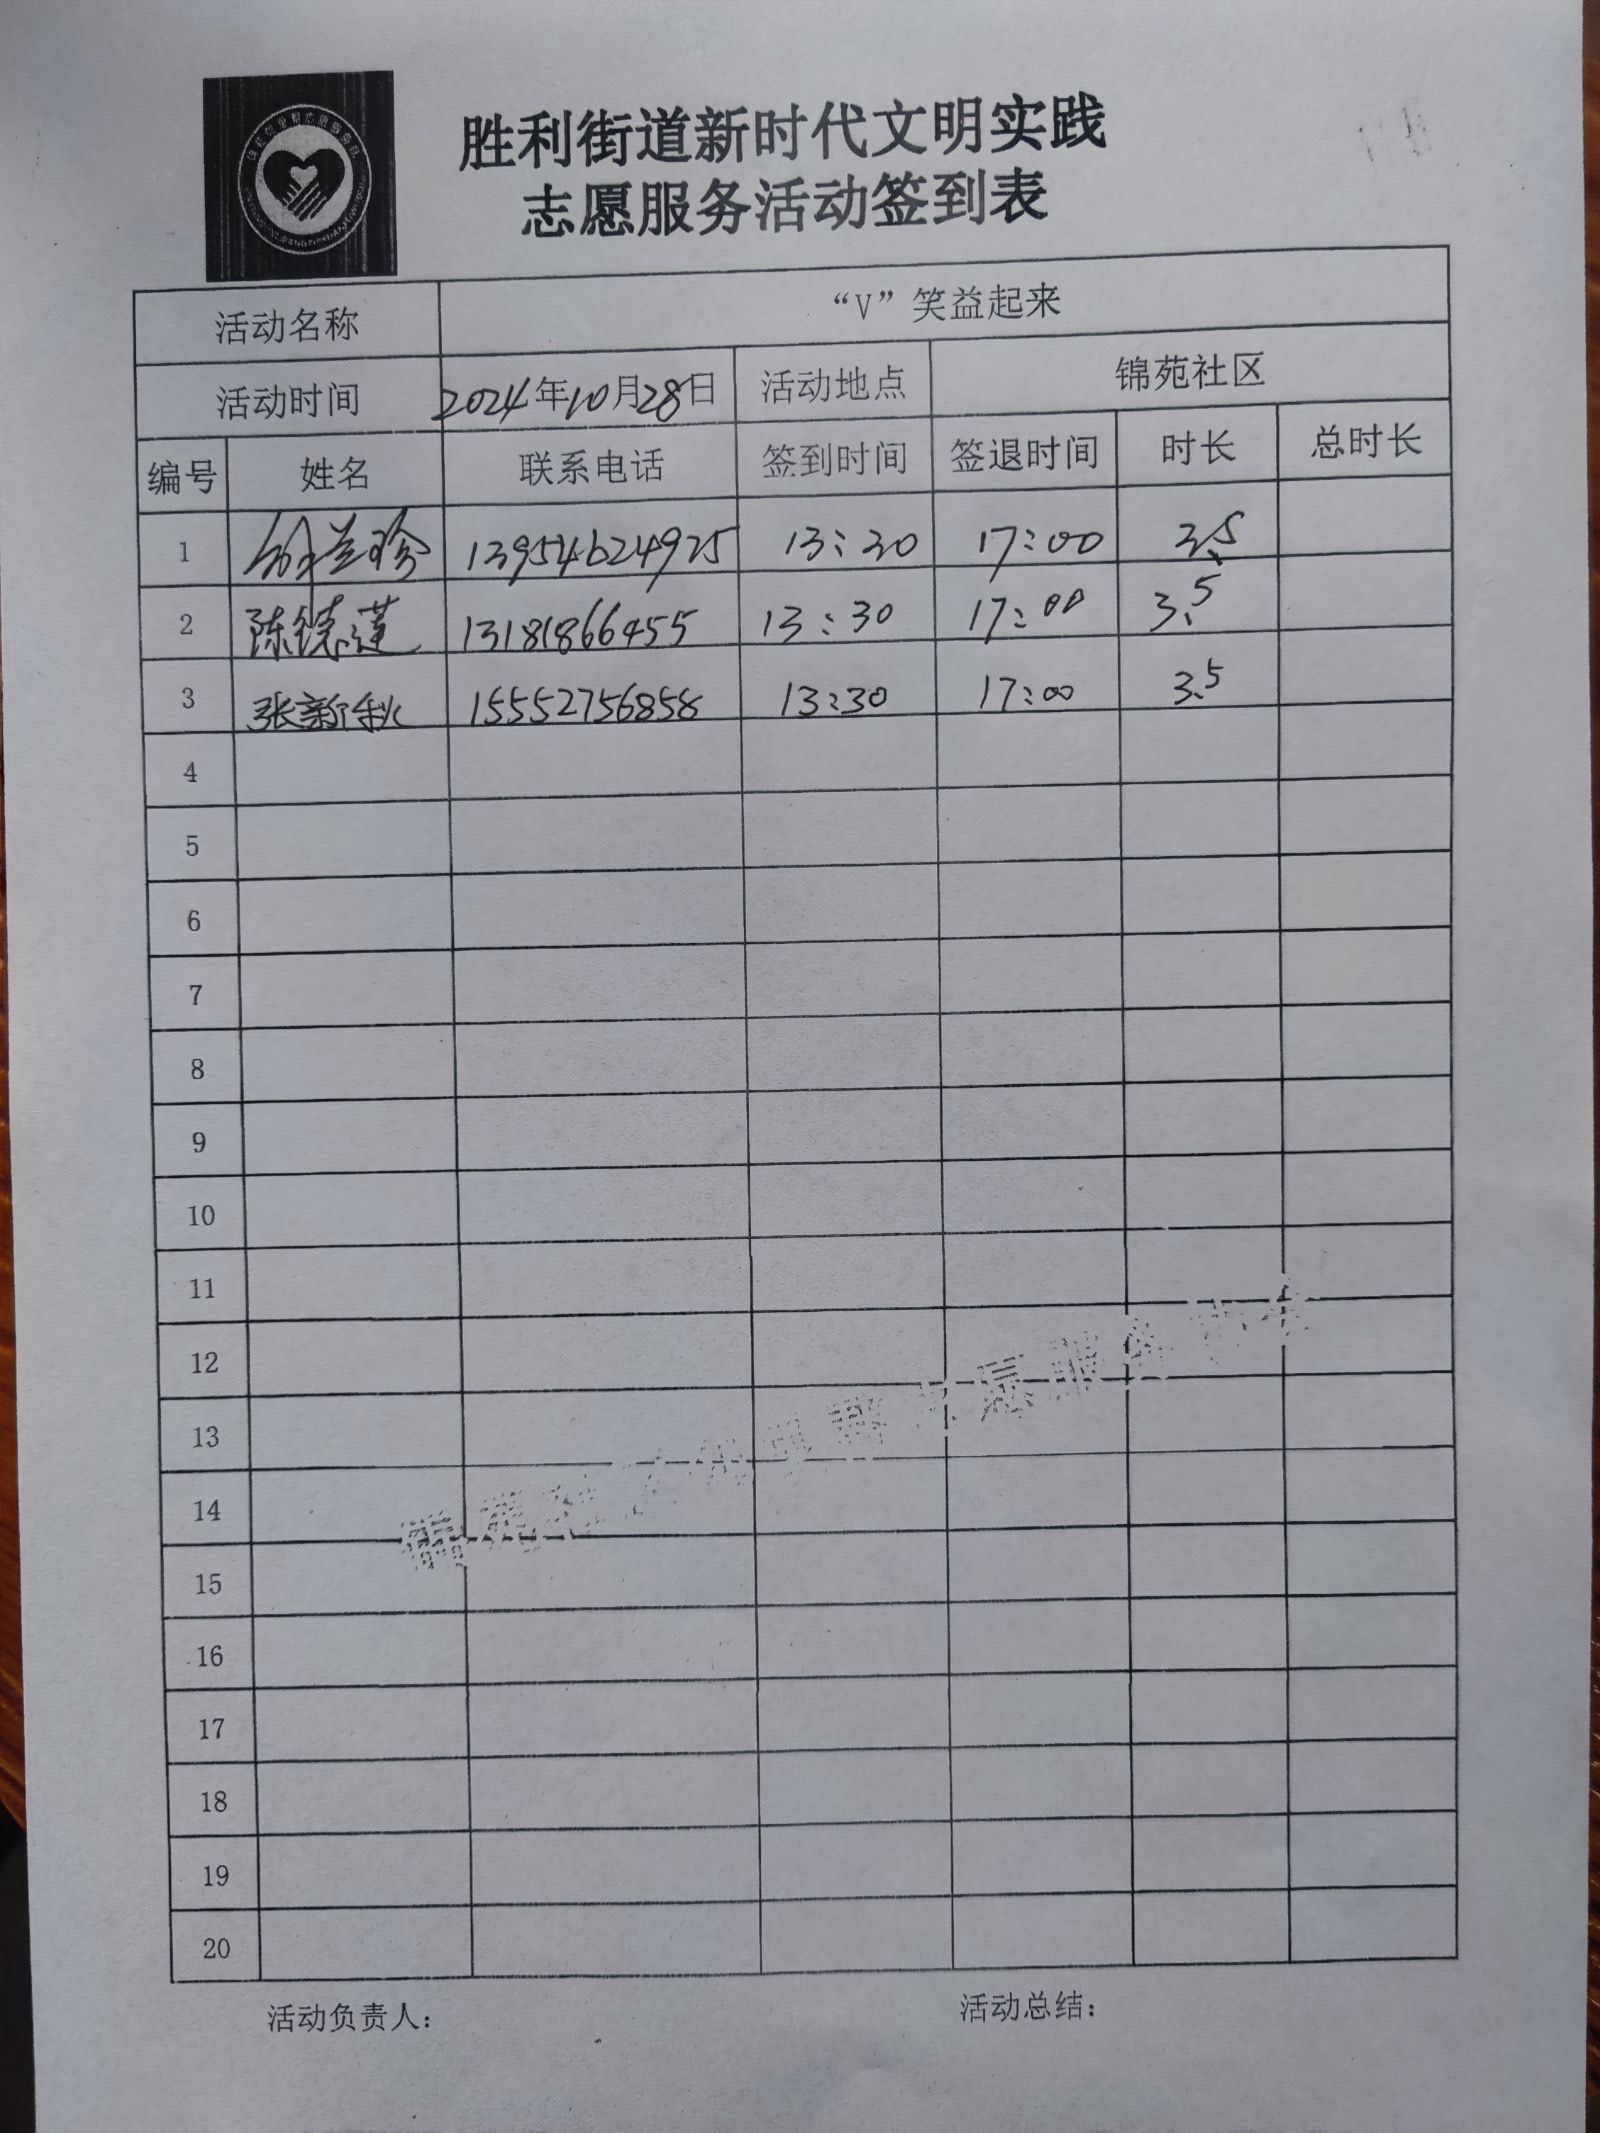 胜利街道新时代文明实践
志愿服务活动签到表
活动名称 “V”笑益起来
活动时间 2024年10月28日 活动地点 锦苑社区
编号 姓名 联系电话 签到时间 签退时间 时长 总时长
1 兰珍 13954624925 13:30 17:00 3.5
2 陈德莲 13181866455 13:30 17:00 3.5
3 张新秋 15552756858 13:30 17:00 3.5
4
5
6
7
8
9
10
11
12
13
14
15
16
17
18
19
20
活动负责人: 活动总结: